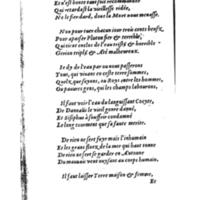 Et s'est honte tant soit recommandé
Qui retardast la vieillesse ridée,
Ne le fier dard, dont la Mort nous menasse.
Non pour tuer chacun iour trois cents beufz,
Pour apaiser Pluton fier & terrible,
Qui tient enclos de l'eau triste & horrible
Gerion triple & malheureux.
Ie dy de l'eau par ou nous passerons
Tous, qui viuans ce terre sommes,
Quelz, que soyons, ou Roys entre les hommes,
Ou pouures gens, qui les champs labourons.
Il faut voir l'eau du languissant Cocyte,
De Danaüs le vieil genre damné,
Et Sisiphus à souffrir condamné
Le long tourment que sa faute merite.
De rien ne sert fuyr mars l'inhumain
Et les grans flotz, de la mer qui haut tonne
De rien ne sert se garder en Autonne
Du mauuais vent nuysant au corps humain.
Il faut laisser Terre maison & femme,
Et